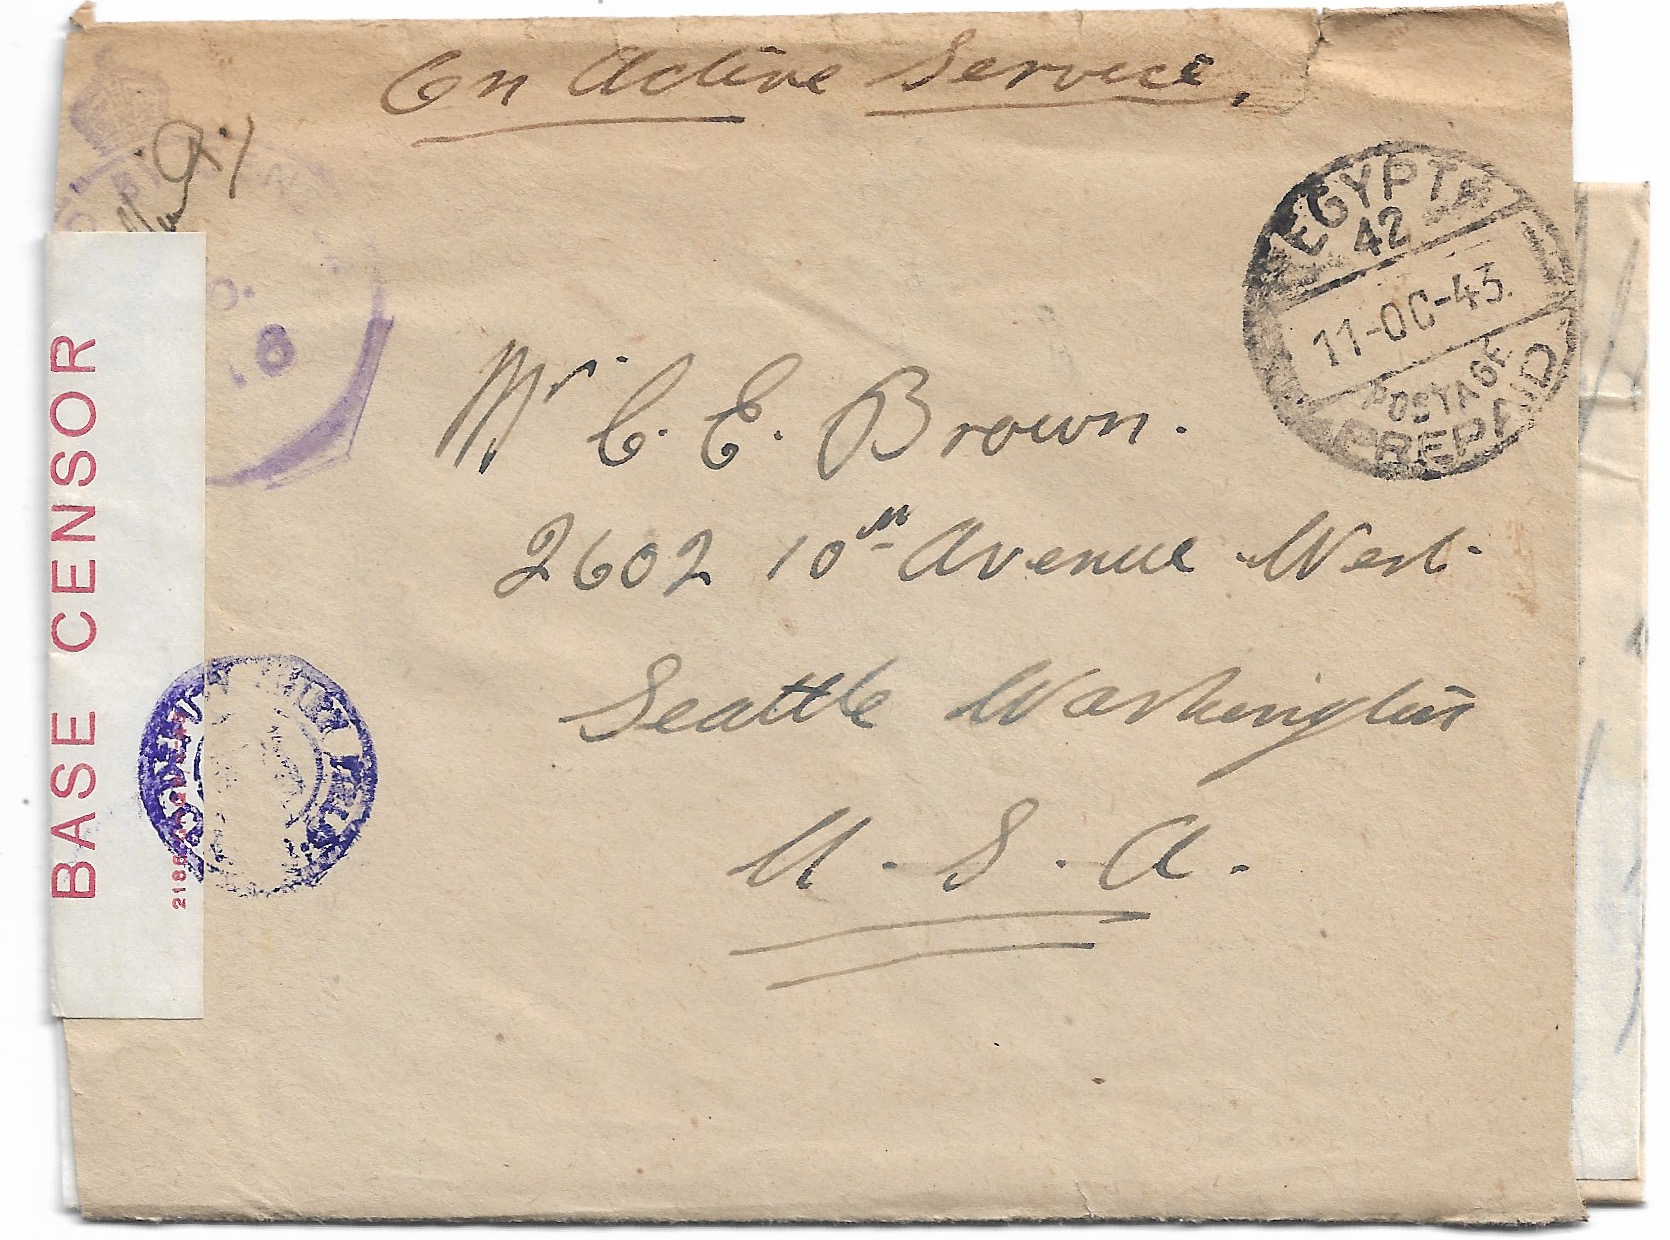 On Active Service.
EGYPT
42
11-OC-43.
POSTAGE
PREPAID
18
Mr. C. E. Brown.
2602 10th Avenue West.
Seattle Washington
U. S. A.
BASE CENSOR